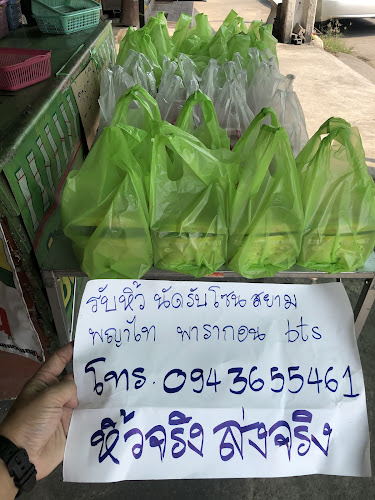 รับหิ้ว นัดรับโซน สยาม
พญาไท พารากอน bts
โทร. 0943655461
หิ้วจริง ส่งจริง